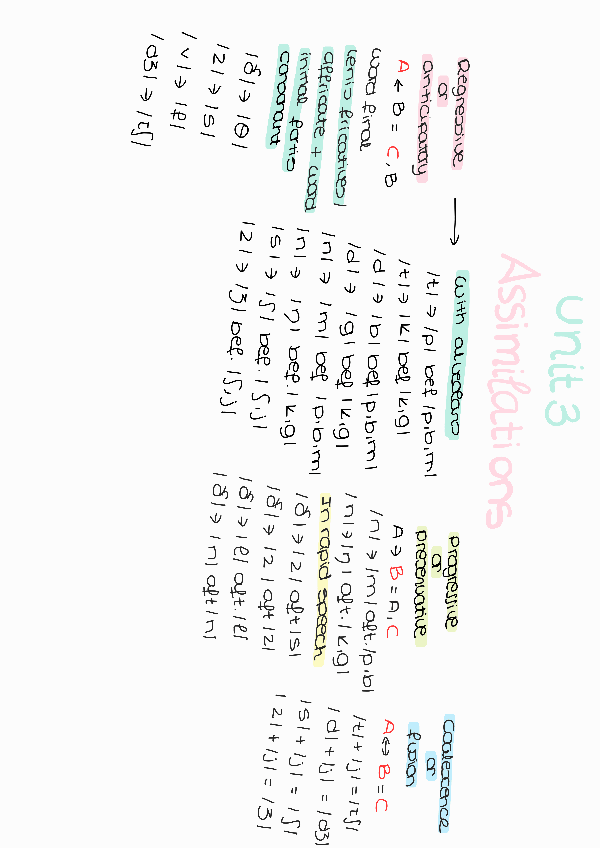 Unit 3
Assimilations
Regressive
or
anticipatory
A ← B = C, B
word final
lenis fricatives/
affricate + word
inital fortis
consonant
/ð/ → /θ/
/z/ → /s/
/v/ → /f/
/dʒ/ → /tʃ/
→ with alveolars
/t/ → /p/ bef /p,b,m/
/t/ → /k/ bef /k,g/
/d/ → /b/ bef /p,b,m/
/d/ → /g/ bef /k,g/
/n/ → /m/ bef /p,b,m/
/n/ → /ŋ/ bef. /k,g/
/s/ → /ʃ/ bef. /ʃ,j/
/z/ → /ʒ/ bef. /ʃ,j/
Progressive
or
preservative
A → B = A, C
/n/ → /m/ aft. /p,b/
/n/ → /ŋ/ aft. /k,g/
In rapid speech
/ð/ → /z/ aft /s/
/ð/ → /z/ aft /z/
/ð/ → /l/ aft. /l/
/ð/ → /n/ aft /n/
Coalescence
or
fusion
A ↔ B = C
/t/ + /j/ = /tʃ/
/d/ + /j/ = /dʒ/
/s/ + /j/ = /ʃ/
/z/ + /j/ = /ʒ/